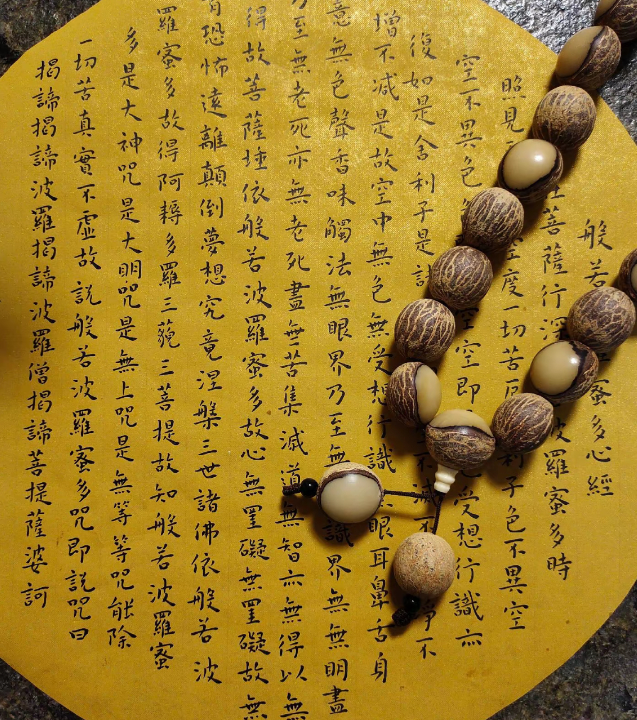 般若蜜多心經
菩薩行深波羅蜜多時
照見空度一切苦利子色不異空
空不異色空空即受想行識亦
復如是舍利子是諸不滅不淨不
增不減是故空中無色無受想行識眼耳鼻舌身
意無色聲香味觸法無眼界乃至無識界無無明盡
乃至無老死亦無老死盡無苦集滅道無智亦無得以無
得故菩薩埵依般若波羅蜜多故心無罣礙無罣礙故無
有恐怖遠離顛倒夢想究竟涅槃三世諸佛依般若波
羅蜜多故得阿耨多羅三藐三菩提故知般若波羅蜜
多是大神咒是大明咒是無上咒是無等等咒能除
一切苦真實不虛故說般若波羅蜜多咒即說咒曰
揭諦揭諦波羅揭諦波羅僧揭諦菩提薩婆訶